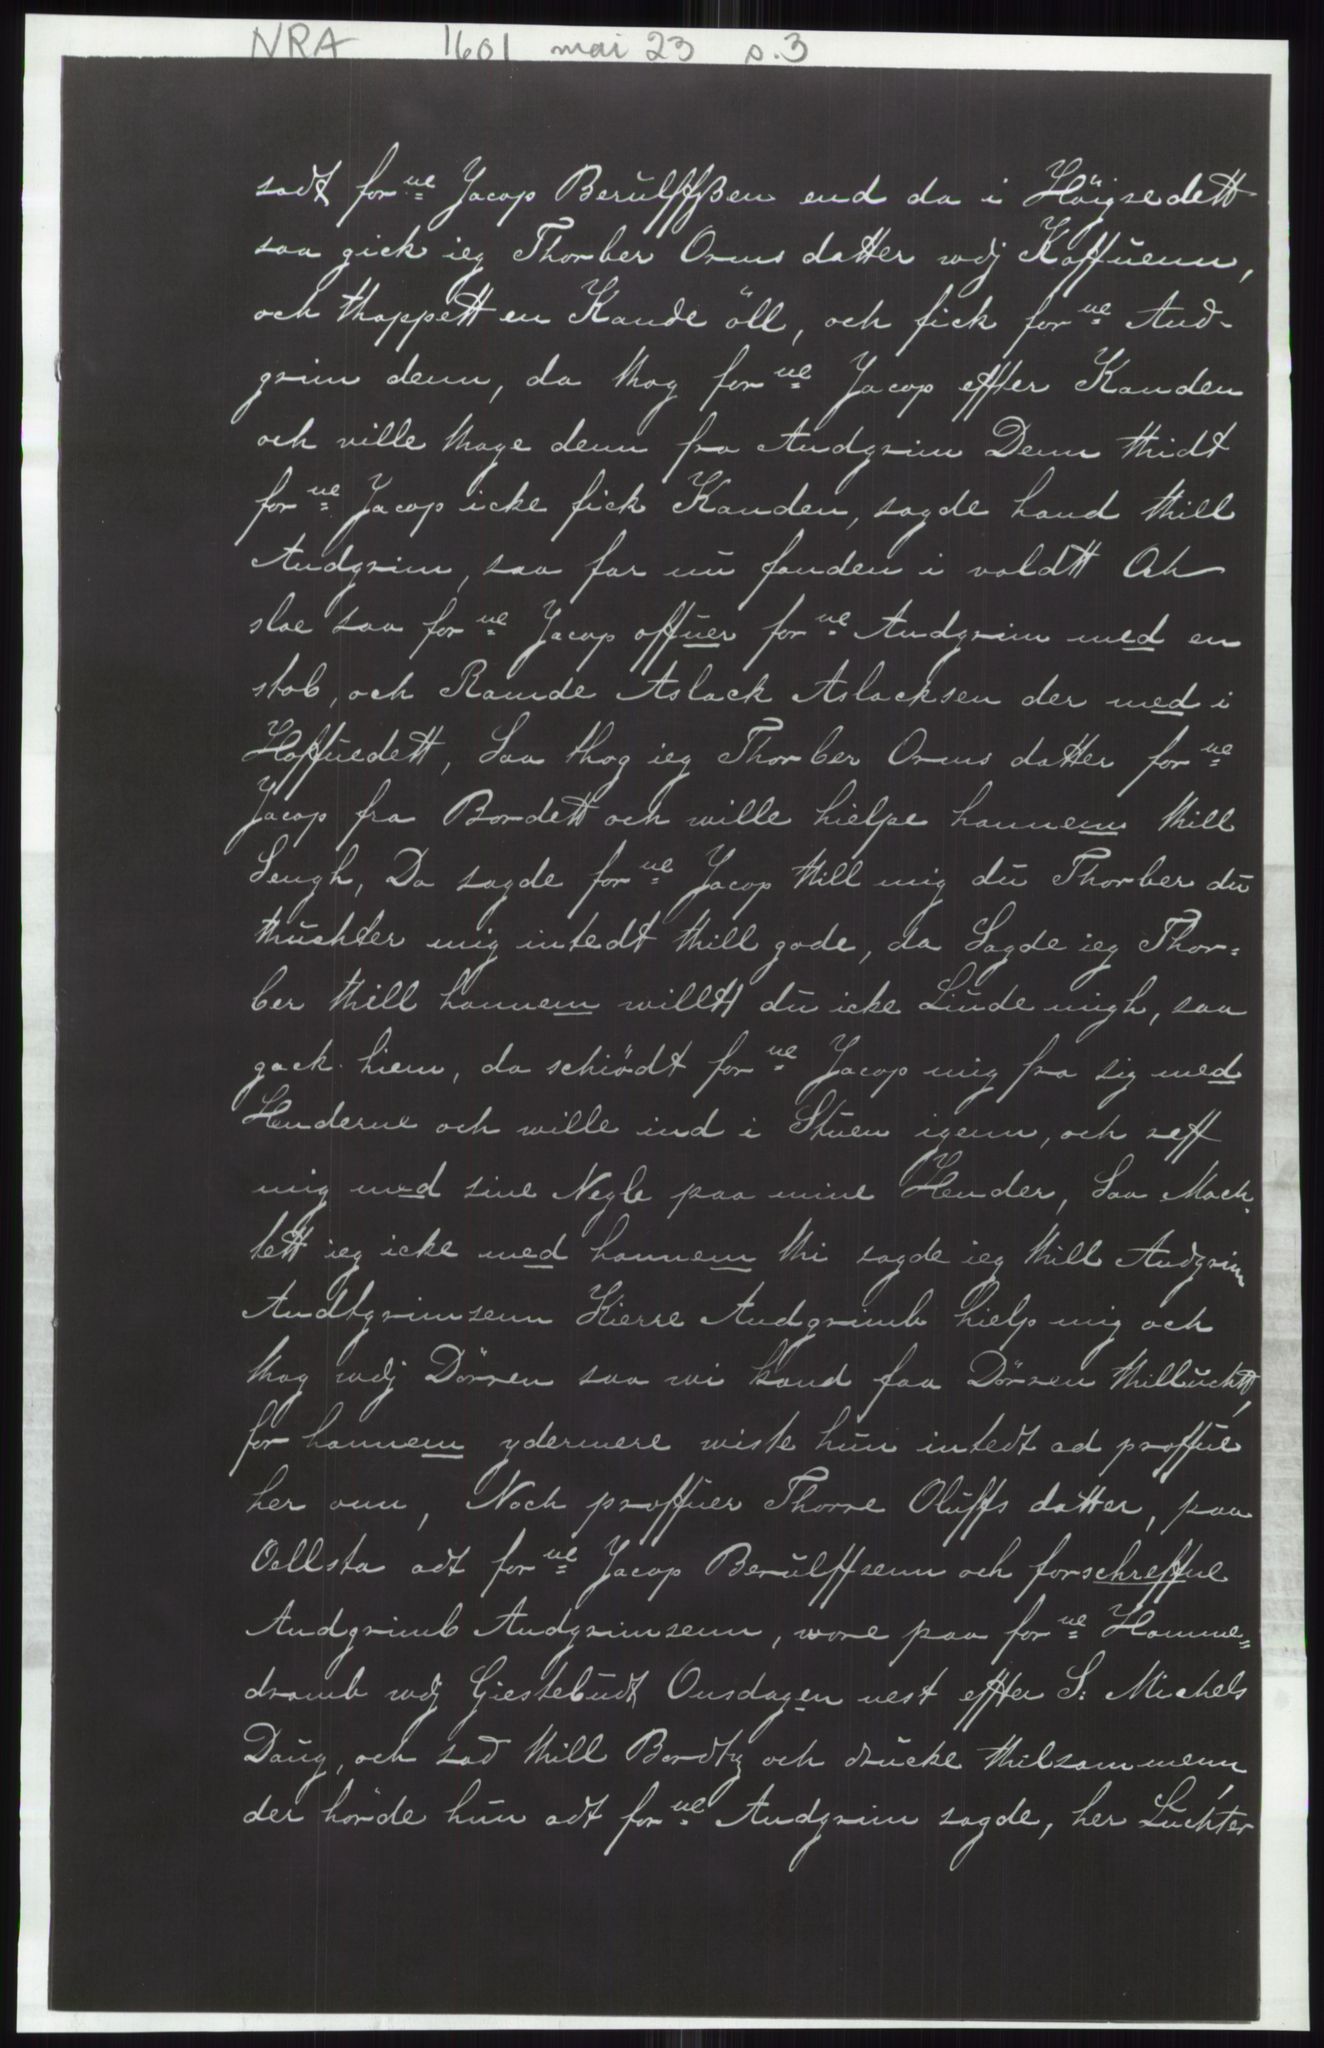 NRA 1601 mai 23 s.3
sadt for ne Jacop Berulffßen end da i Höigsedett
saa gick ieg Thorber Orms datter wdj Kaffuenn,
och thappett en Kande öll, och fick for ne And-
grim denn, da thog for ne Jacop effter Kanden
och ville thage denn fra Andgrim Denn thidt
for ne Jacop icke fick Kanden, sagde hand thill
Andgrim, saa far nu fanden i valdtt Och
sloe saa for ne Jacop offuer for ne Andgrim med en
stob, och Ramde Aslack Aslacksen der med i
Hoffuedett, Saa thog ieg Thorber Orms datter for ne
Jacop fra Bordett och wille hielpe hannem thill
Sengh, Da sagde for ne Jacop thill mig du Thorber du
thuchter mig intedt thill gode, da Sagde ieg Thor-
ber thill hannem willtt du icke Liude migh, saa
gack hiem, da schiödt for ne Jacop mig fra sig med
Henderne och wille ind i Stuen igenn, och reff
mig med sine Negle paa mine Hender, Saa Mach-
tett ieg icke med hannem thi sagde ieg thill Andgrim
Andtgrimsenn Kierre Andgrimb hielp mig och
thag wdj Dörren saa wi kand faa Dörren thilluchtt,
for hannem ydermere wiste hun intedt ad proffue
her om, Noch proffuer Thorre Oluffs datter, paa
Oellsta adt for ne Jacop Berulffsenn och forschreffne
Andgrimb Andgrimsenn, wore paa for ne Hamme-
dramb wdj Giestebudt Onsdagen nest effter S: Michels
Daug, och sad thill Bordtz och drucke thilsammenn,
der hörde hun adt for ne Andgrim sagde, her Luchter